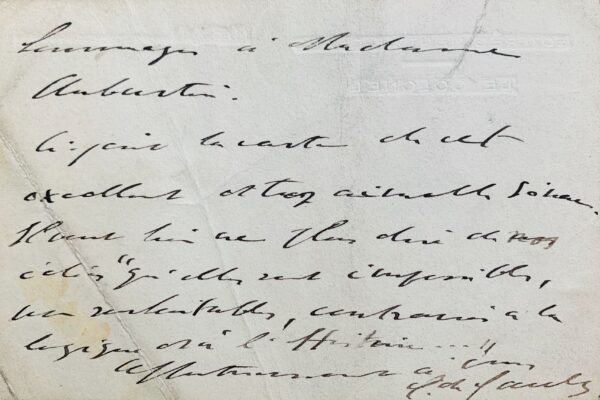 hommages à Madame
Aubertin.
Ci-joint la carte de cet
excellent et trop
Il vaut mieux ne plus dire de nos
idées "qu'elles sont impossibles,
contraires à la
logique et à l'Histoire ...."
Affectueusement à vous
C. de Gaulle